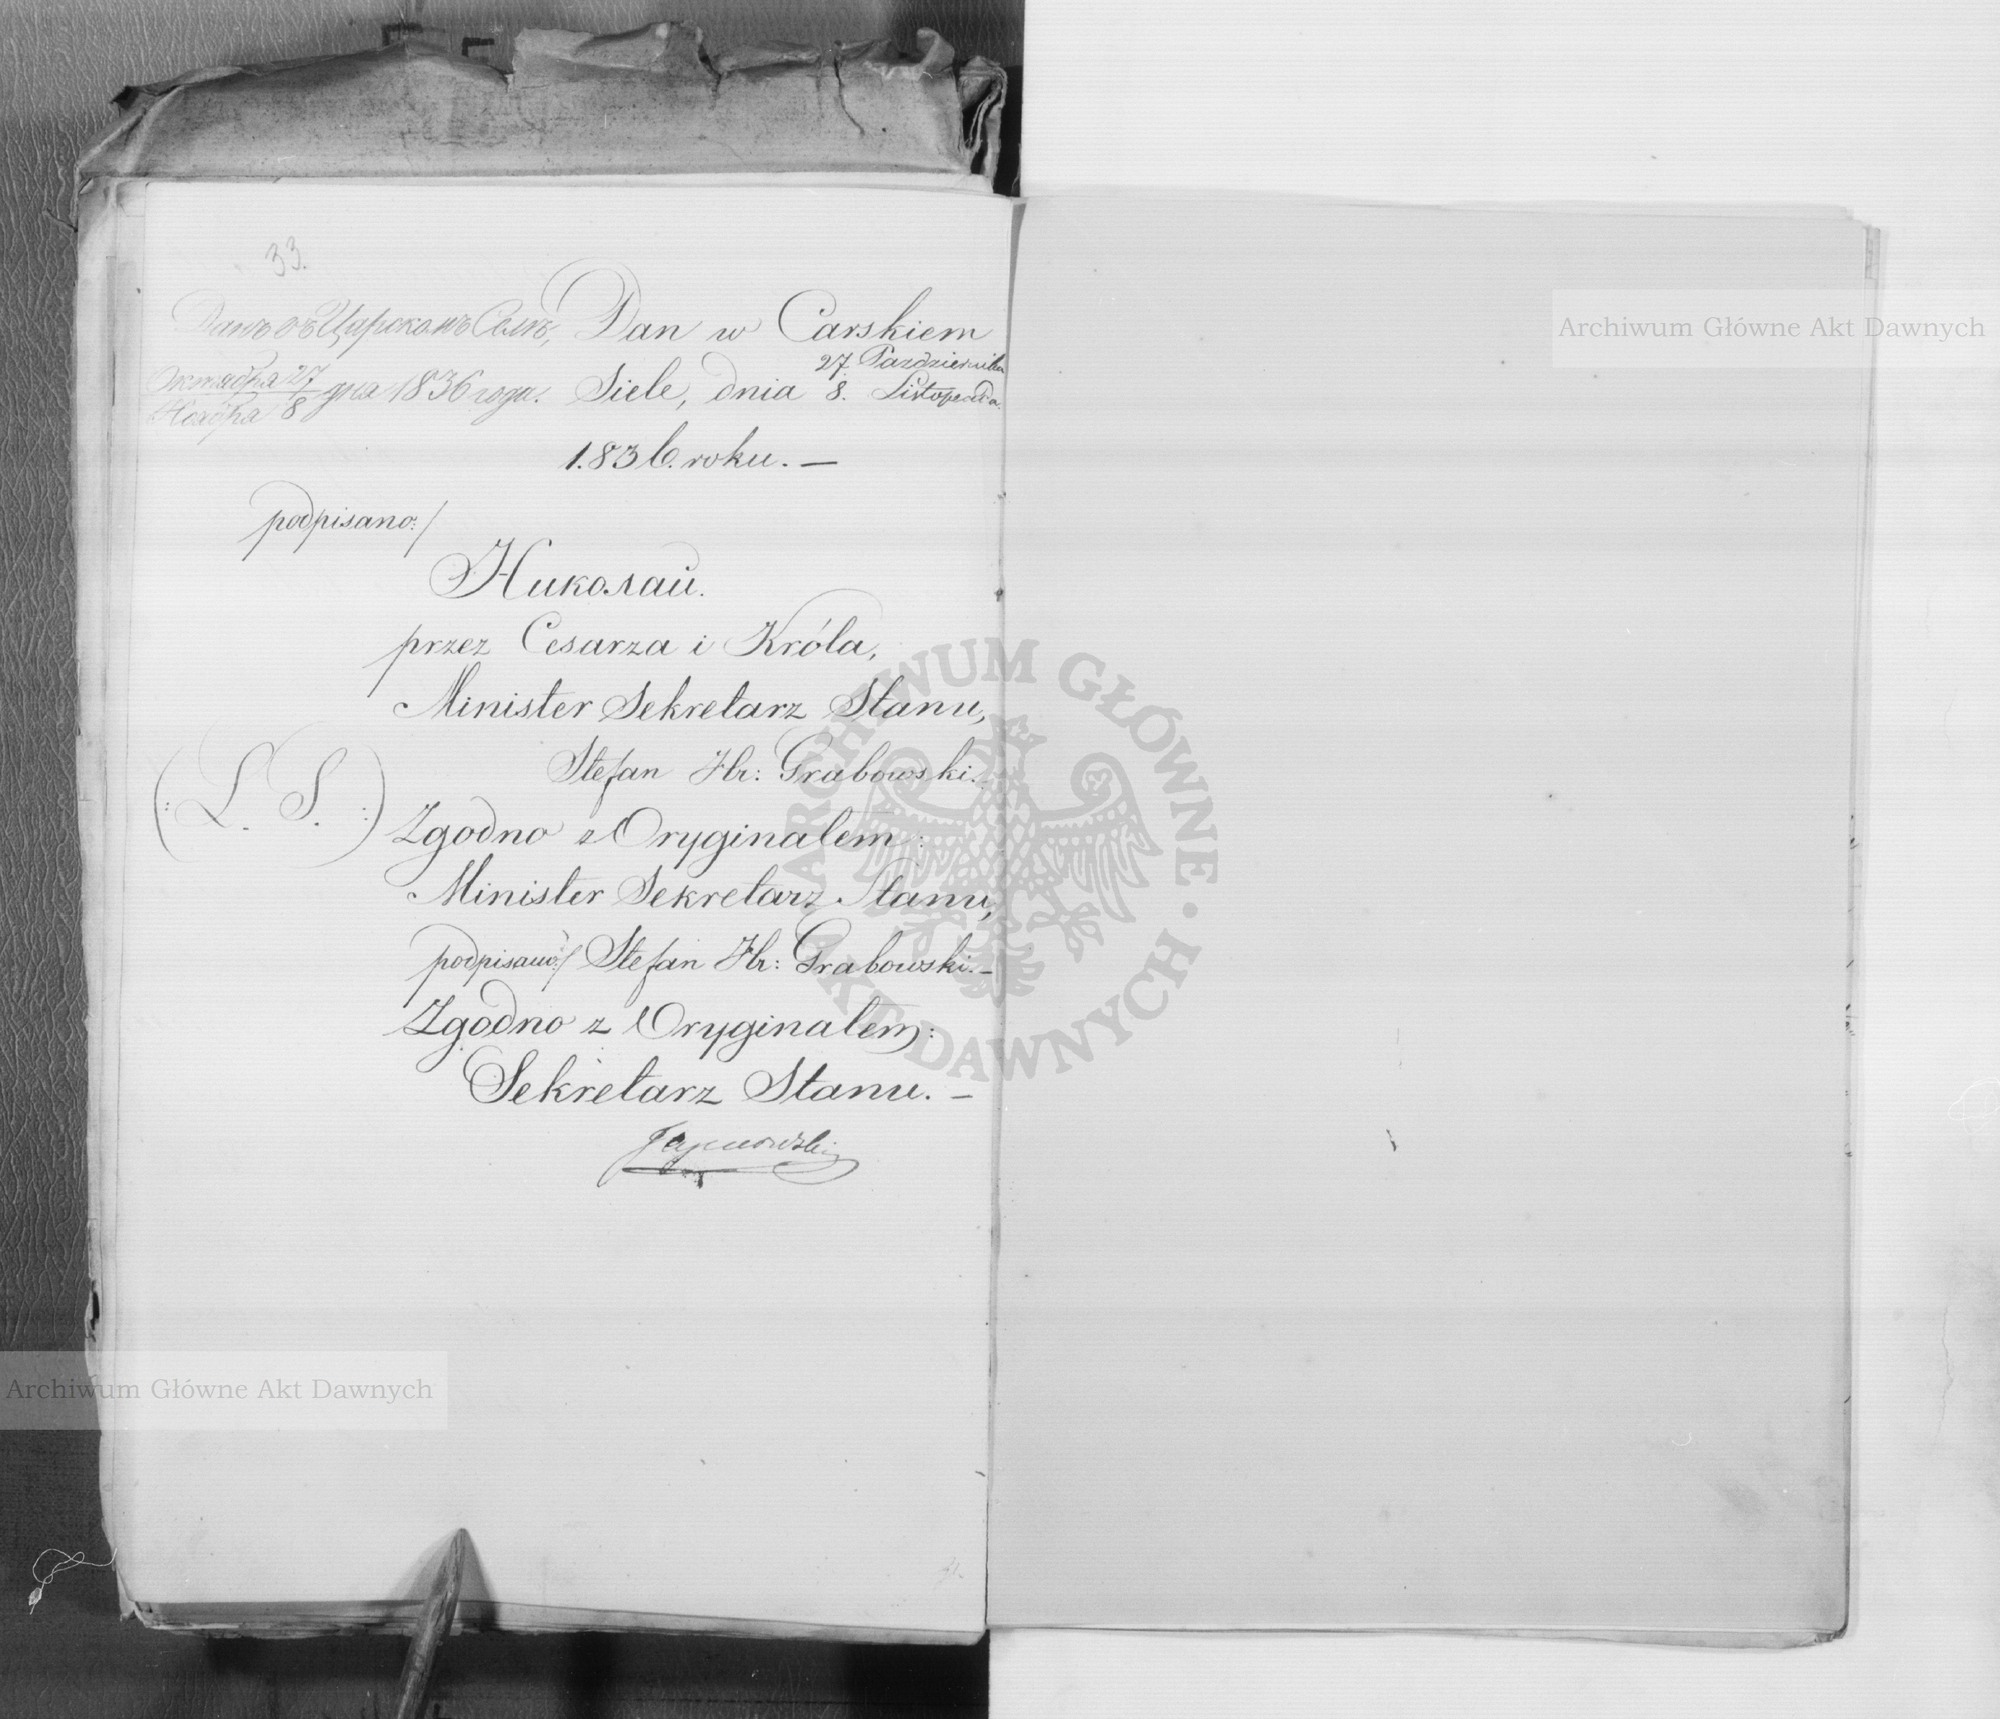 33.
Данъ въ Царскомъ Селѣ,
Октября 27
Ноября 8 дня 1836 года.
Dan w Carskiem
27. Października
Siele, dnia 8. Listopada
1.836. roku. —
podpisano:/
Николай.
przez Cesarza i Króla,
Minister Sekretarz Stanu,
Stefan Hr: Grabowski.
(: L. S. :)
Zgodno z Oryginałem:
Minister Sekretarz Stanu,
podpisano:/ Stefan Hr: Grabowski. —
Zgodno z Oryginałem:
Sekretarz Stanu. —
Archiwum Główne Akt Dawnych
Archiwum Główne Akt Dawnych
ARCHIWUM GŁÓWNE • AKT DAWNYCH •